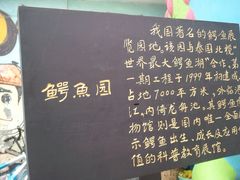 鳄鱼园
我国著名的鳄鱼展
览园地，该园与泰国北榄"
世界最大鳄鱼湖"合作，第
一期工程于1999年初建成，
占地7000平方米，外临港
江，内倚龙舟池。其鳄鱼
物馆则是国内唯一全面
示鳄鱼出生、成长及应用
值的科普教育展馆。